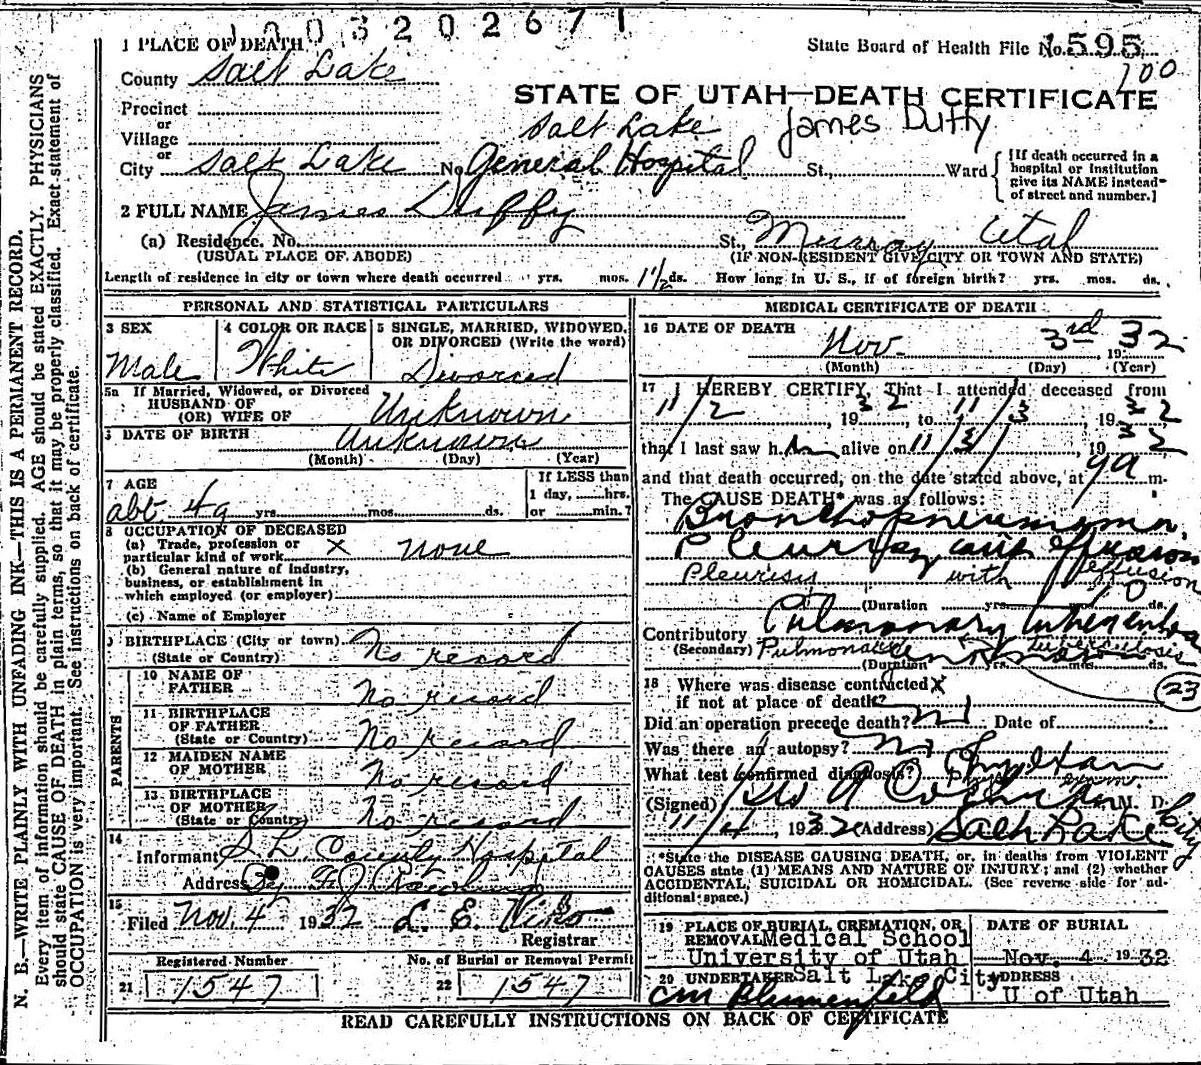 1003202671
1 PLACE OF DEATH
State Board of Health File No. 1595
100
County Salt Lake
STATE OF UTAH—DEATH CERTIFICATE
Precinct
or
Village
Salt Lake James Duffy
or
City Salt Lake No. General Hospital St., Ward
[If death occurred in a
hospital or institution
give its NAME instead
of street and number.]
2 FULL NAME James Duffy
(a) Residence. No. St., Murray Utah
(USUAL PLACE OF ABODE) (IF NON-RESIDENT GIVE CITY OR TOWN AND STATE)
Length of residence in city or town where death occurred yrs. mos. 1½ ds. How long in U. S., if of foreign birth? yrs. mos. ds.
PERSONAL AND STATISTICAL PARTICULARS
3 SEX 4 COLOR OR RACE 5 SINGLE, MARRIED, WIDOWED,
OR DIVORCED (Write the word)
Male White Divorced
5a If Married, Widowed, or Divorced
HUSBAND OF
(OR) WIFE OF Unknown
DATE OF BIRTH Unknown
(Month) (Day) (Year)
7 AGE If LESS than
1 day, hrs.
abt yrs. mos. ds. or min.?
8 OCCUPATION OF DECEASED
(a) Trade, profession or
particular kind of work X none
(b) General nature of industry,
business, or establishment in
which employed (or employer)
(c) Name of Employer
9 BIRTHPLACE (City or town)
(State or Country) No record
PARENTS
10 NAME OF
FATHER No record
11 BIRTHPLACE
OF FATHER
(State or Country) No record
12 MAIDEN NAME
OF MOTHER No record
13 BIRTHPLACE
OF MOTHER
(State or Country) No record
14
Informant S. L. County Hospital
Address By
15
Filed Nov. 4 1932 L. E.
Registrar
Registered Number No. of Burial or Removal Permit
21 1547 22 1547
MEDICAL CERTIFICATE OF DEATH
16 DATE OF DEATH
Nov. 3rd 1932
(Month) (Day) (Year)
17 I HEREBY CERTIFY, That I attended deceased from
11/2, 1932, to 11/3, 1932
that I last saw h alive on 11/3/, 1932
and that death occurred, on the date stated above, at 9 a m.
The CAUSE DEATH* was as follows:
Bronchopneumonia,
Pleurisy with effusion
Pleurisy with effusion
(Duration yrs. mos. ds.
Contributory Pulmonary tuberculosis
(Secondary) Pulmonary tuberculosis
(Duration yrs. mos. ds.
23
18 Where was disease contracted X
if not at place of death?
Did an operation precede death? no Date of
Was there an autopsy? no
What test confirmed diagnosis? Phys Exam
Phys. exam.
(Signed) M. D.
11/4, 1932 (Address) Salt Lake City
*State the DISEASE CAUSING DEATH, or, in deaths from VIOLENT
CAUSES state (1) MEANS AND NATURE OF INJURY; and (2) whether
ACCIDENTAL, SUICIDAL OR HOMICIDAL. (See reverse side for ad-
ditional space.)
19 PLACE OF BURIAL, CREMATION, OR
REMOVAL Medical School
University of Utah
Salt Lake City
DATE OF BURIAL
Nov. 4 1932
20 UNDERTAKER ADDRESS
CM Blumenfeld U of Utah
READ CAREFULLY INSTRUCTIONS ON BACK OF CERTIFICATE
N. B.—WRITE PLAINLY WITH UNFADING INK—THIS IS A PERMANENT RECORD.
Every item of information should be carefully supplied. AGE should be stated EXACTLY. PHYSICIANS
should state CAUSE OF DEATH in plain terms, so that it may be properly classified. Exact statement of
OCCUPATION is very important. See instructions on back of certificate.